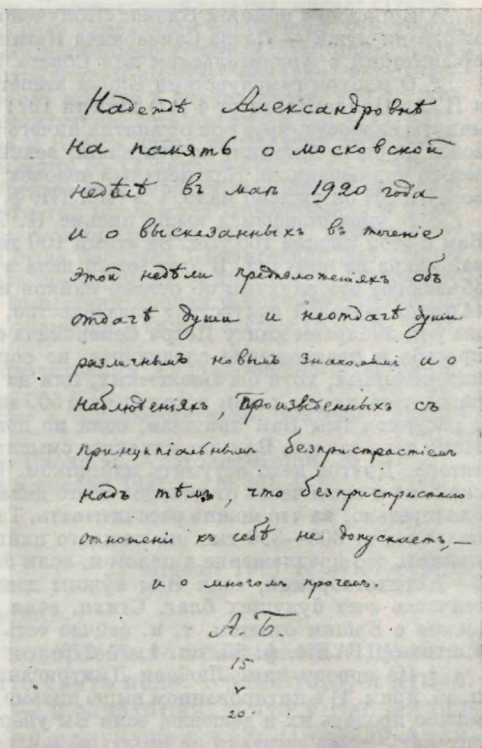 Надеждѣ Александровнѣ
на память о московской
недѣлѣ въ маѣ 1920 года
и о высказанныхъ въ теченіе
этой недѣли предположеніяхъ объ
отдачѣ души и неотдачѣ души
различнымъ новымъ знакомымъ и о
наблюденіяхъ, произведенныхъ съ
принципіальнымъ безпристрастіемъ
надъ тѣмъ, что безпристрастнаго
отношенія къ себѣ не допускаетъ, —
и о многомъ прочемъ.
А. Б.
15
V
20